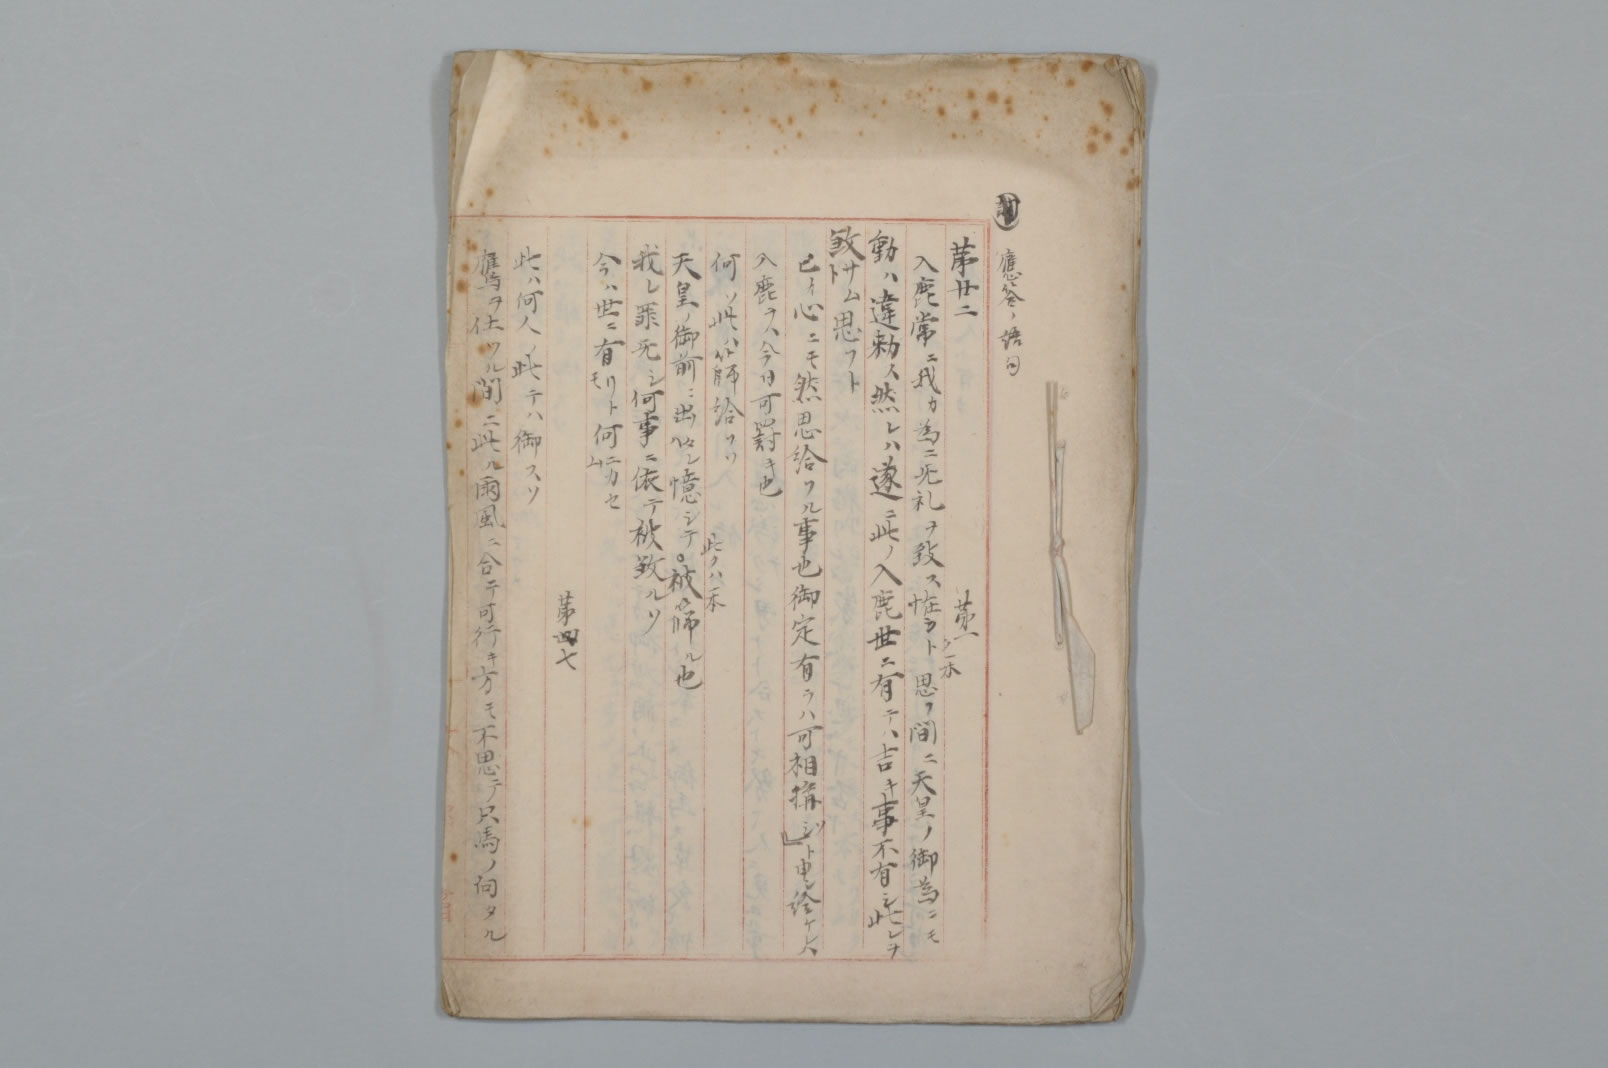 應答ノ語句
第廿二
第一
入鹿常ニ我カ為ニ无礼ヲ致ス恠ト思フ間ニ天皇ノ御為ニモ
動ハ違勅ス然レハ遂ニ此ノ入鹿世ニ有テハ吉キ事不有シ此レヲ
致サム思フト
已イ心ニモ然思給ツル事也御定有ラハ可相構シソト申シ給ケレハ
入鹿ヲハ今日可罸キ也
何ソ此ハ篩給フソ
此クハ一本
天皇ノ御前ニ出ルハ憶シテ被篩ル也
我レ罪无シ何事ニ依テ被致ルソ
今ハ世ニ有リトモ何ニカセム
第四七
此ハ何人ノ此テハ御スソ
鷹ヲ仕ツル間ニ此ル雨風ニ合テ可行キ方モ不思テ只馬ノ向タル